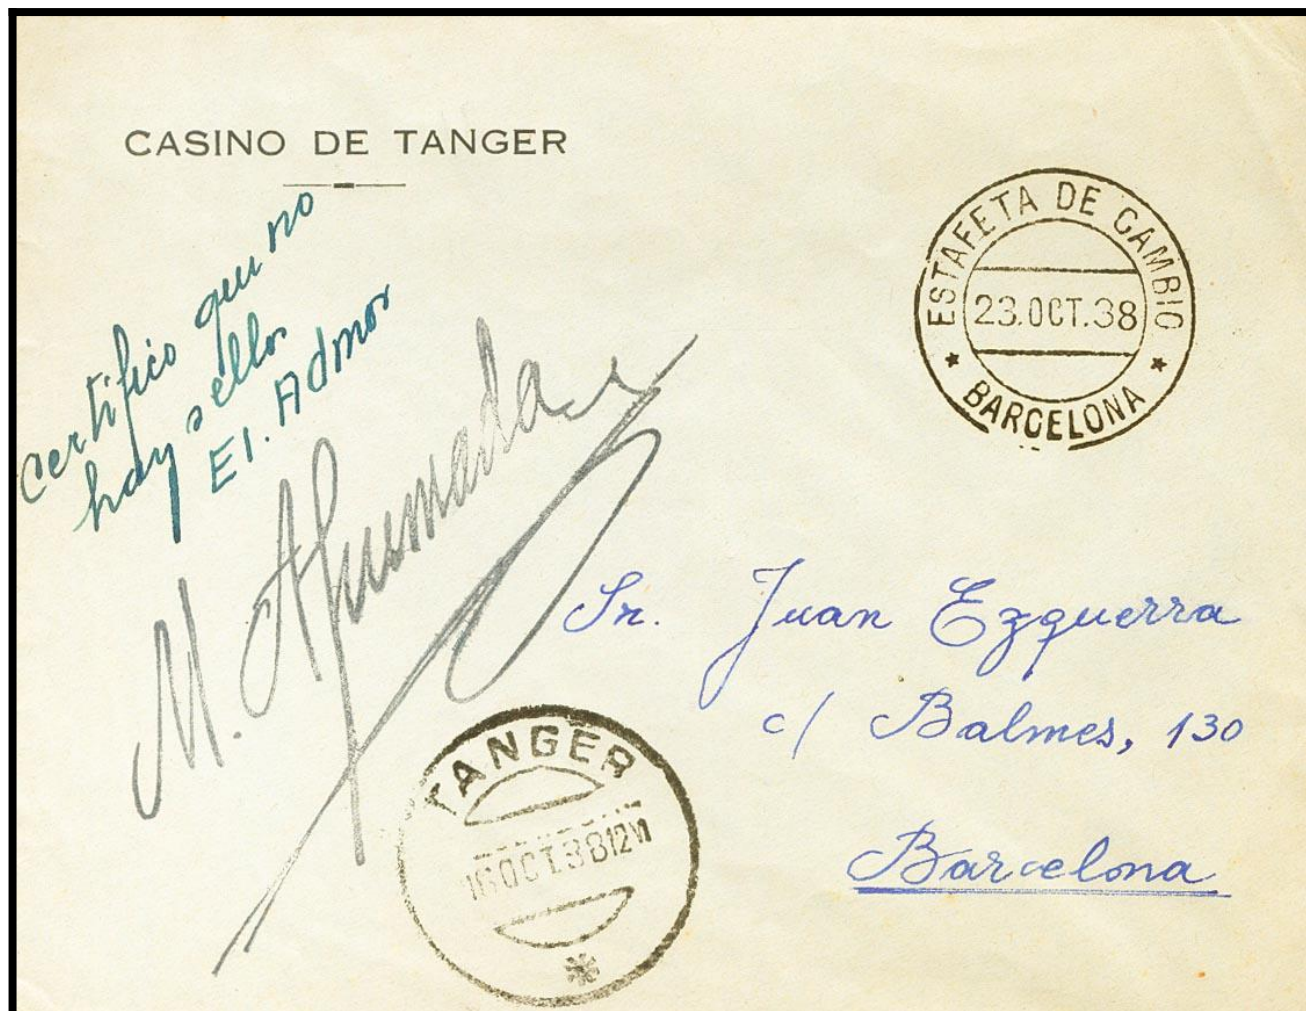 CASINO DE TANGER
certifico que no
hay sellos
El. Admor
M. Ahumada
ESTAFETA DE CAMBIO
23.OCT.38
BARCELONA
Sr. Juan Ezquerra
c/ Balmes, 130
Barcelona
TANGER
16 OCT.38 12